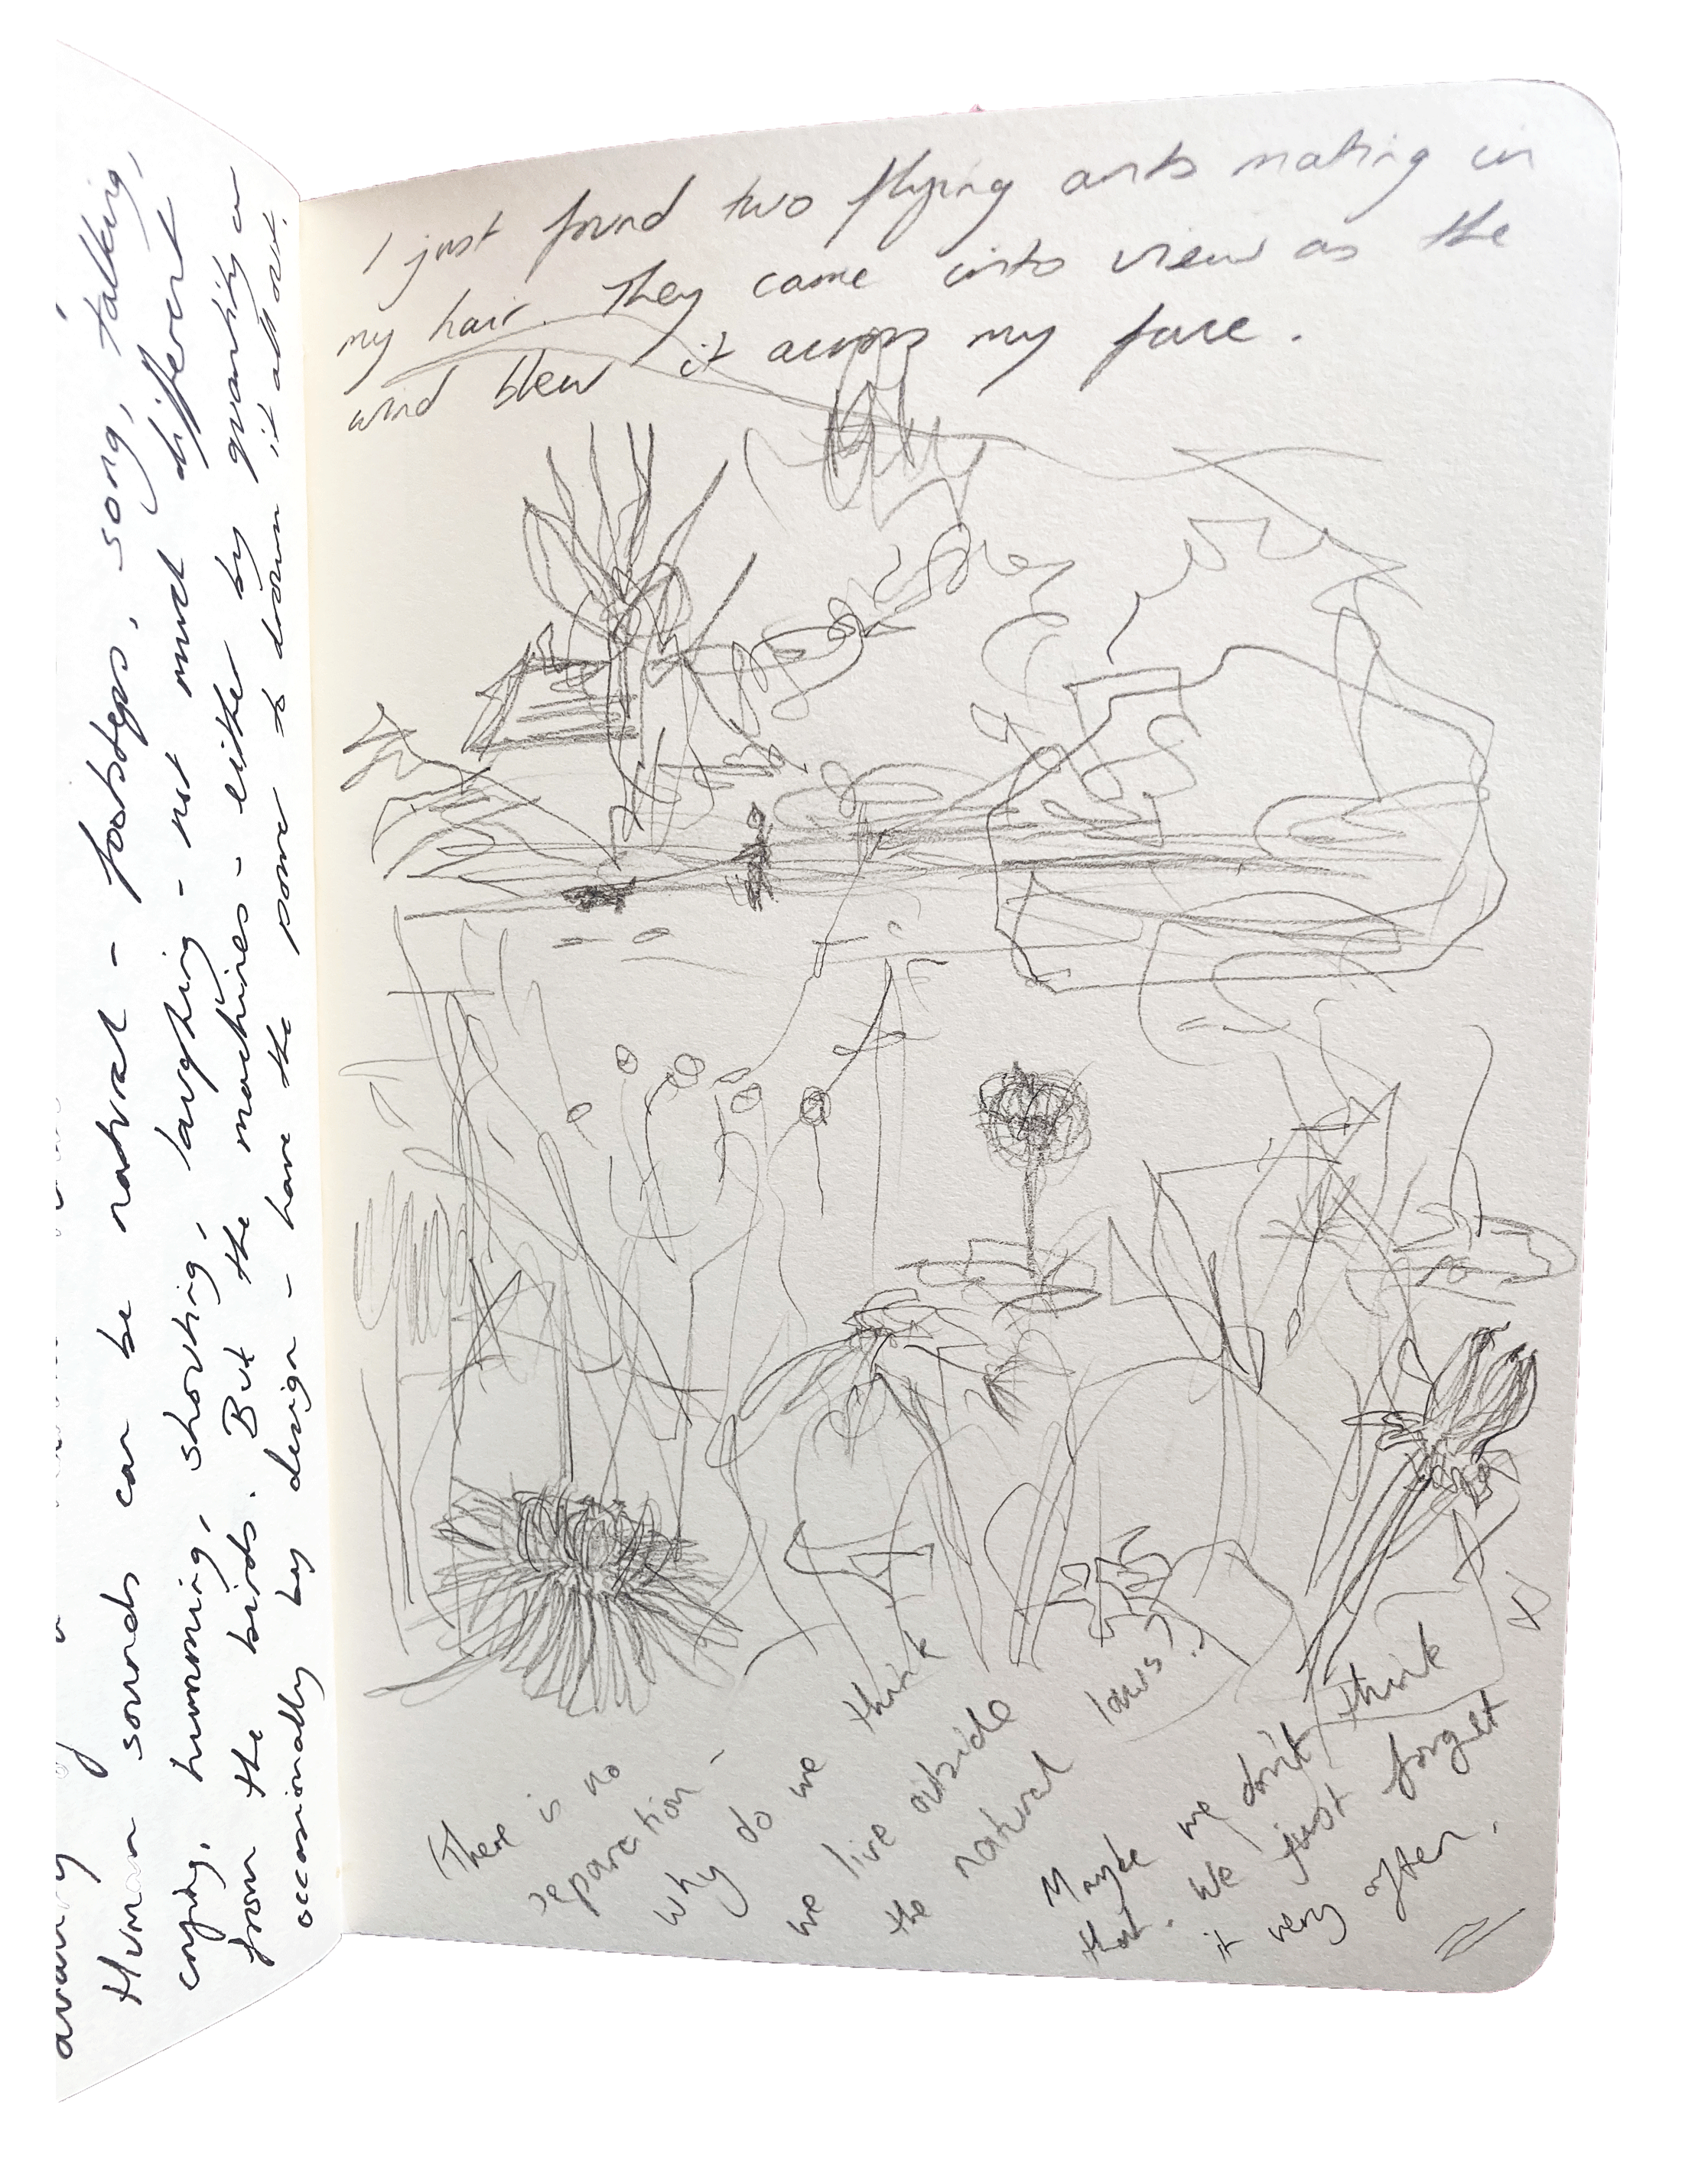 Human sounds can be natural - footsteps, song, talking,
crying, humming, shouting, laughing - not much different
from the birds. But the machines - either by quantity or
occasionally by design - have the power to drown it all out.
I just found two flying ants mating in
my hair. They came into view as the
wind blew it across my face.
(There is no
separation -
why do we think
we live outside
the natural laws?)
Maybe we don't think
that. We just forget
it very often.